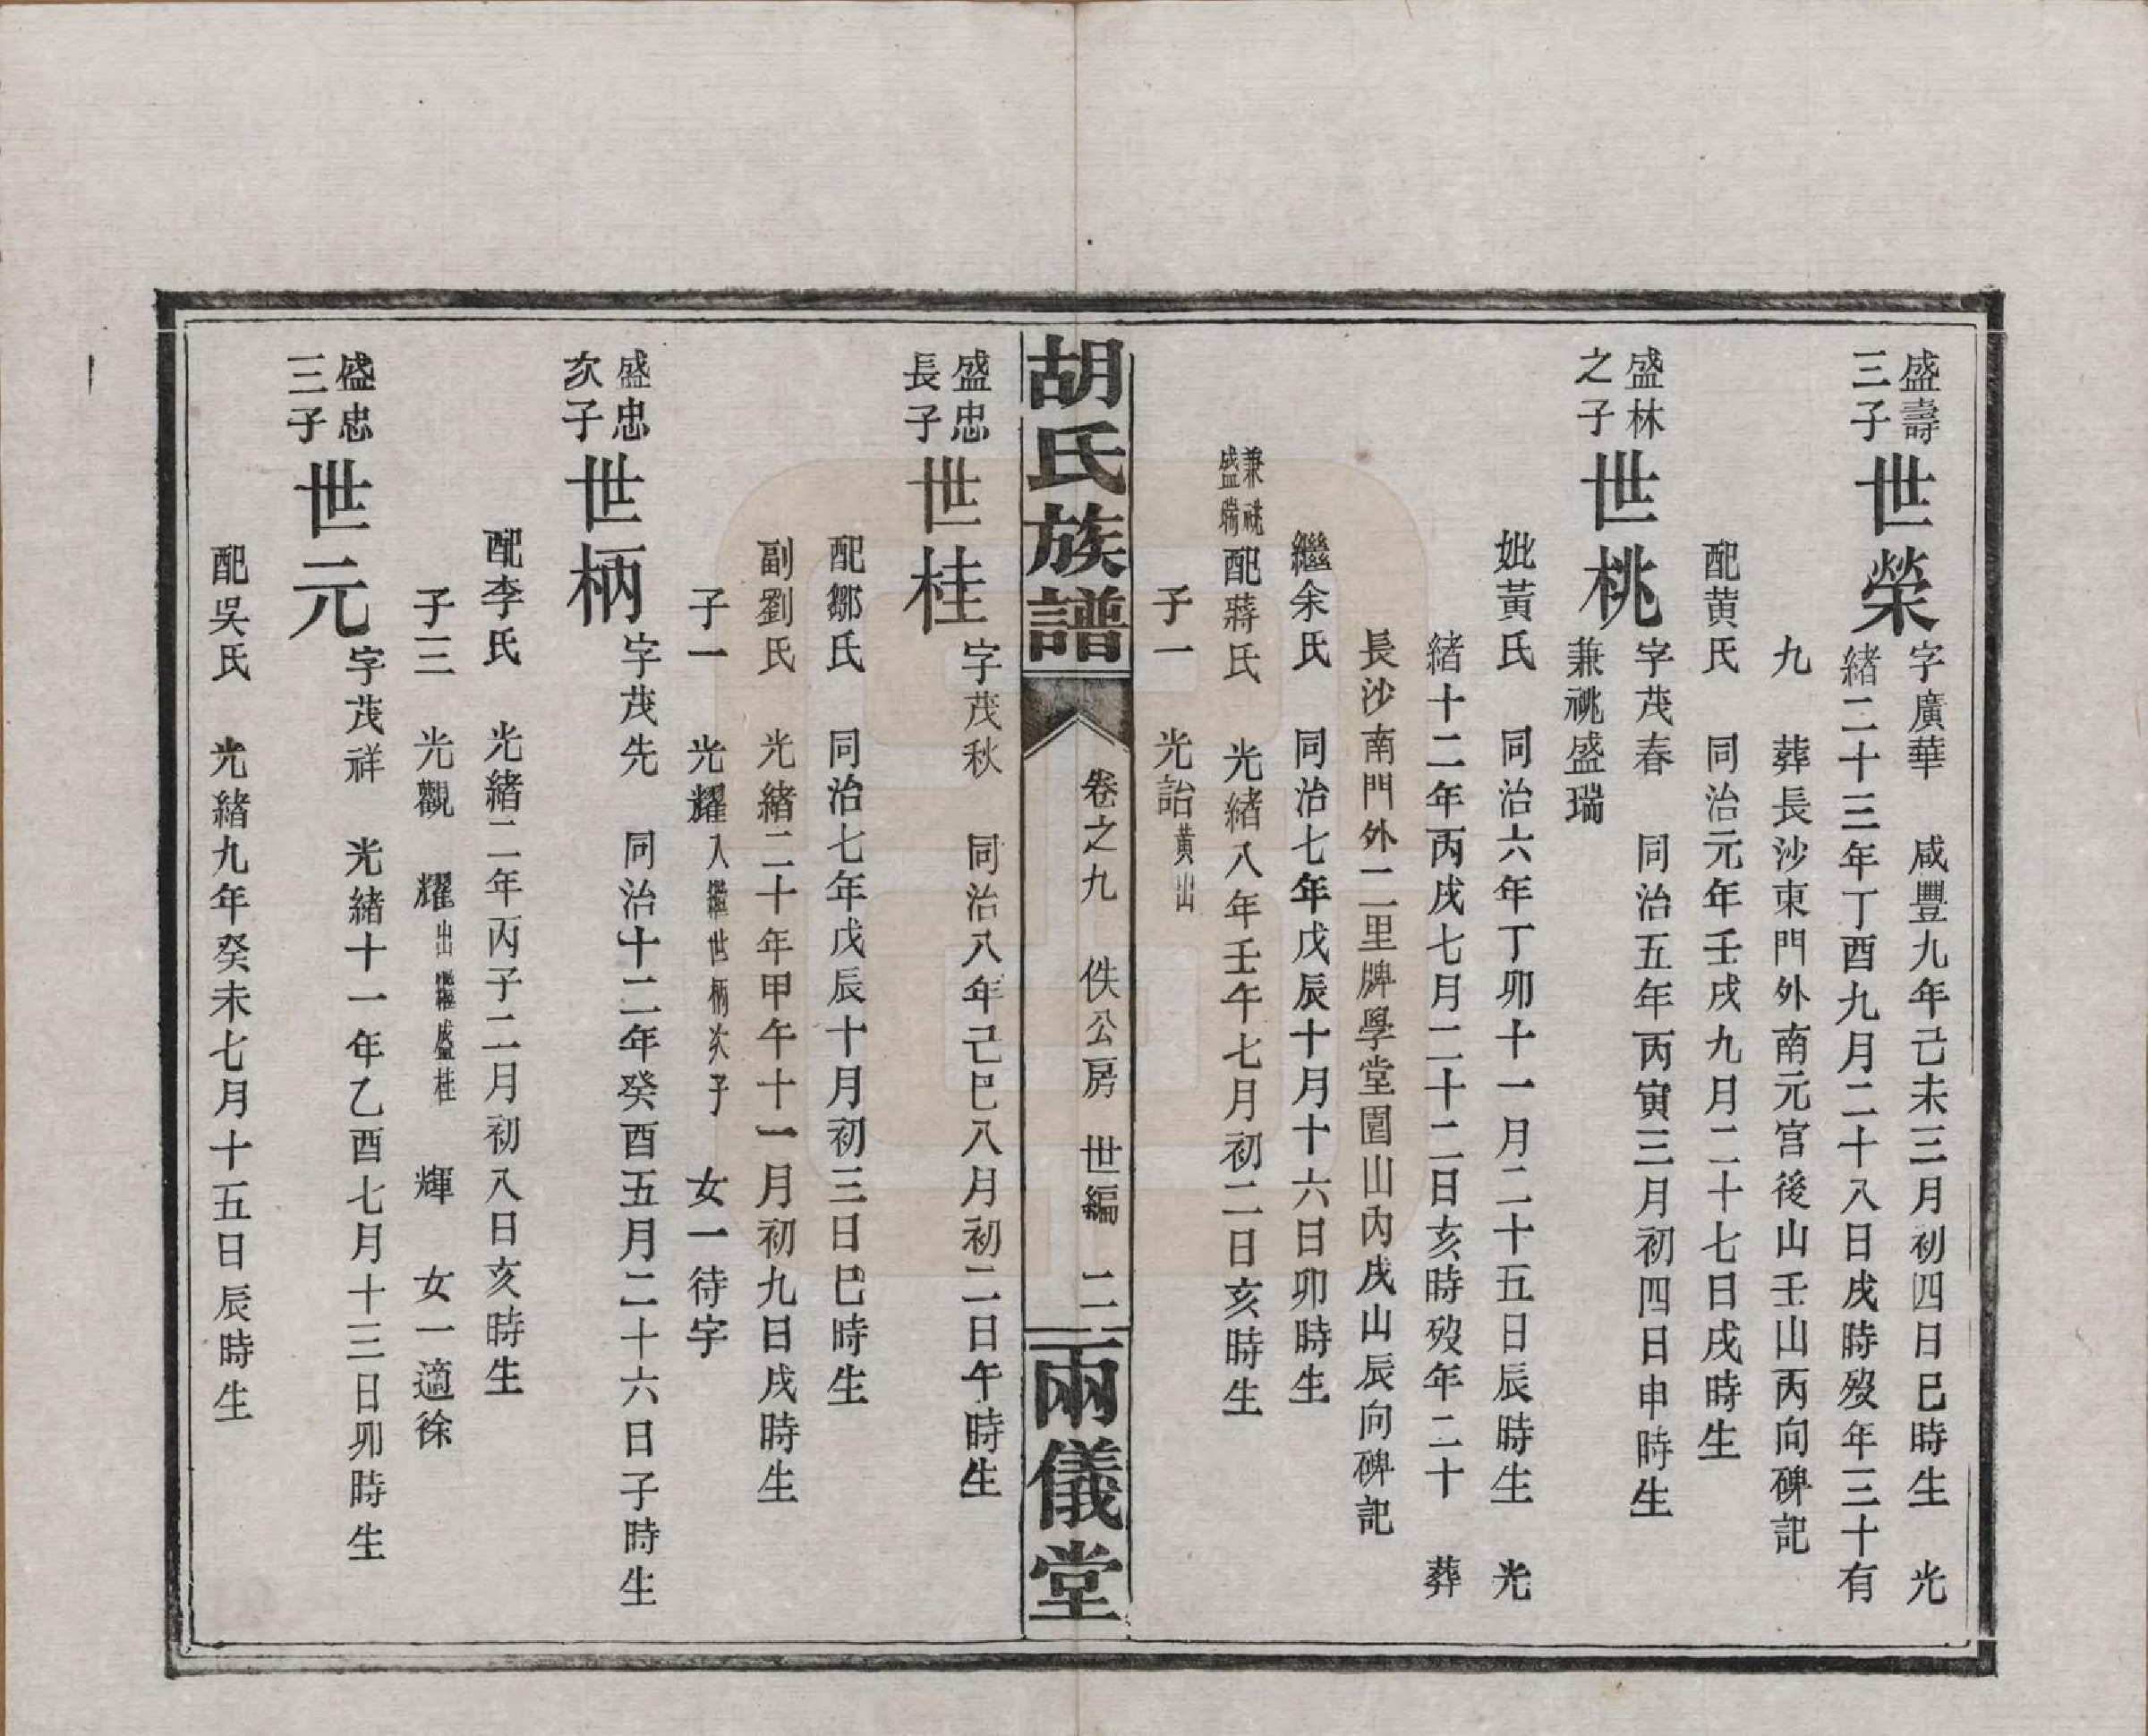 盛壽
三子
世榮
字廣華　咸豐九年己未三月初四日巳時生　光
緒二十三年丁酉九月二十八日戌時歿年三十有
九　葬長沙東門外南元宮後山壬山丙向碑記
配黄氏　同治元年壬戌九月二十七日戌時生
盛林
之子
世桃
字茂春　同治五年丙寅三月初四日申時生
兼祧盛瑞
妣黃氏　同治六年丁卯十一月二十五日辰時生　光
緒十二年丙戌七月二十二日亥時歿年二十　葬
長沙南門外二里牌學堂園山內戌山辰向碑記
繼余氏　同治七年戊辰十月十六日卯時生
兼祧
盛瑞
配蔣氏　光緒八年壬午七月初二日亥時生
子一　光詒黄出
胡氏族譜
卷之九　佚公房　世編　二
兩儀堂
盛忠
長子
世桂
字茂秋　同治八年己巳八月初二日午時生
配鄒氏　同治七年戊辰十月初三日巳時生
副劉氏　光緒二十年甲午十一月初九日戌時生
子一　光耀入繼世柄次子　女一待字
盛忠
次子
世柄
字茂先　同治十二年癸酉五月二十六日子時生
配李氏　光緒二年丙子二月初八日亥時生
子三　光觀　耀出繼盛桂　輝　女一適徐
盛忠
三子
世元
字茂祥　光緒十一年乙酉七月十三日卯時生
配吳氏　光緒九年癸未七月十五日辰時生